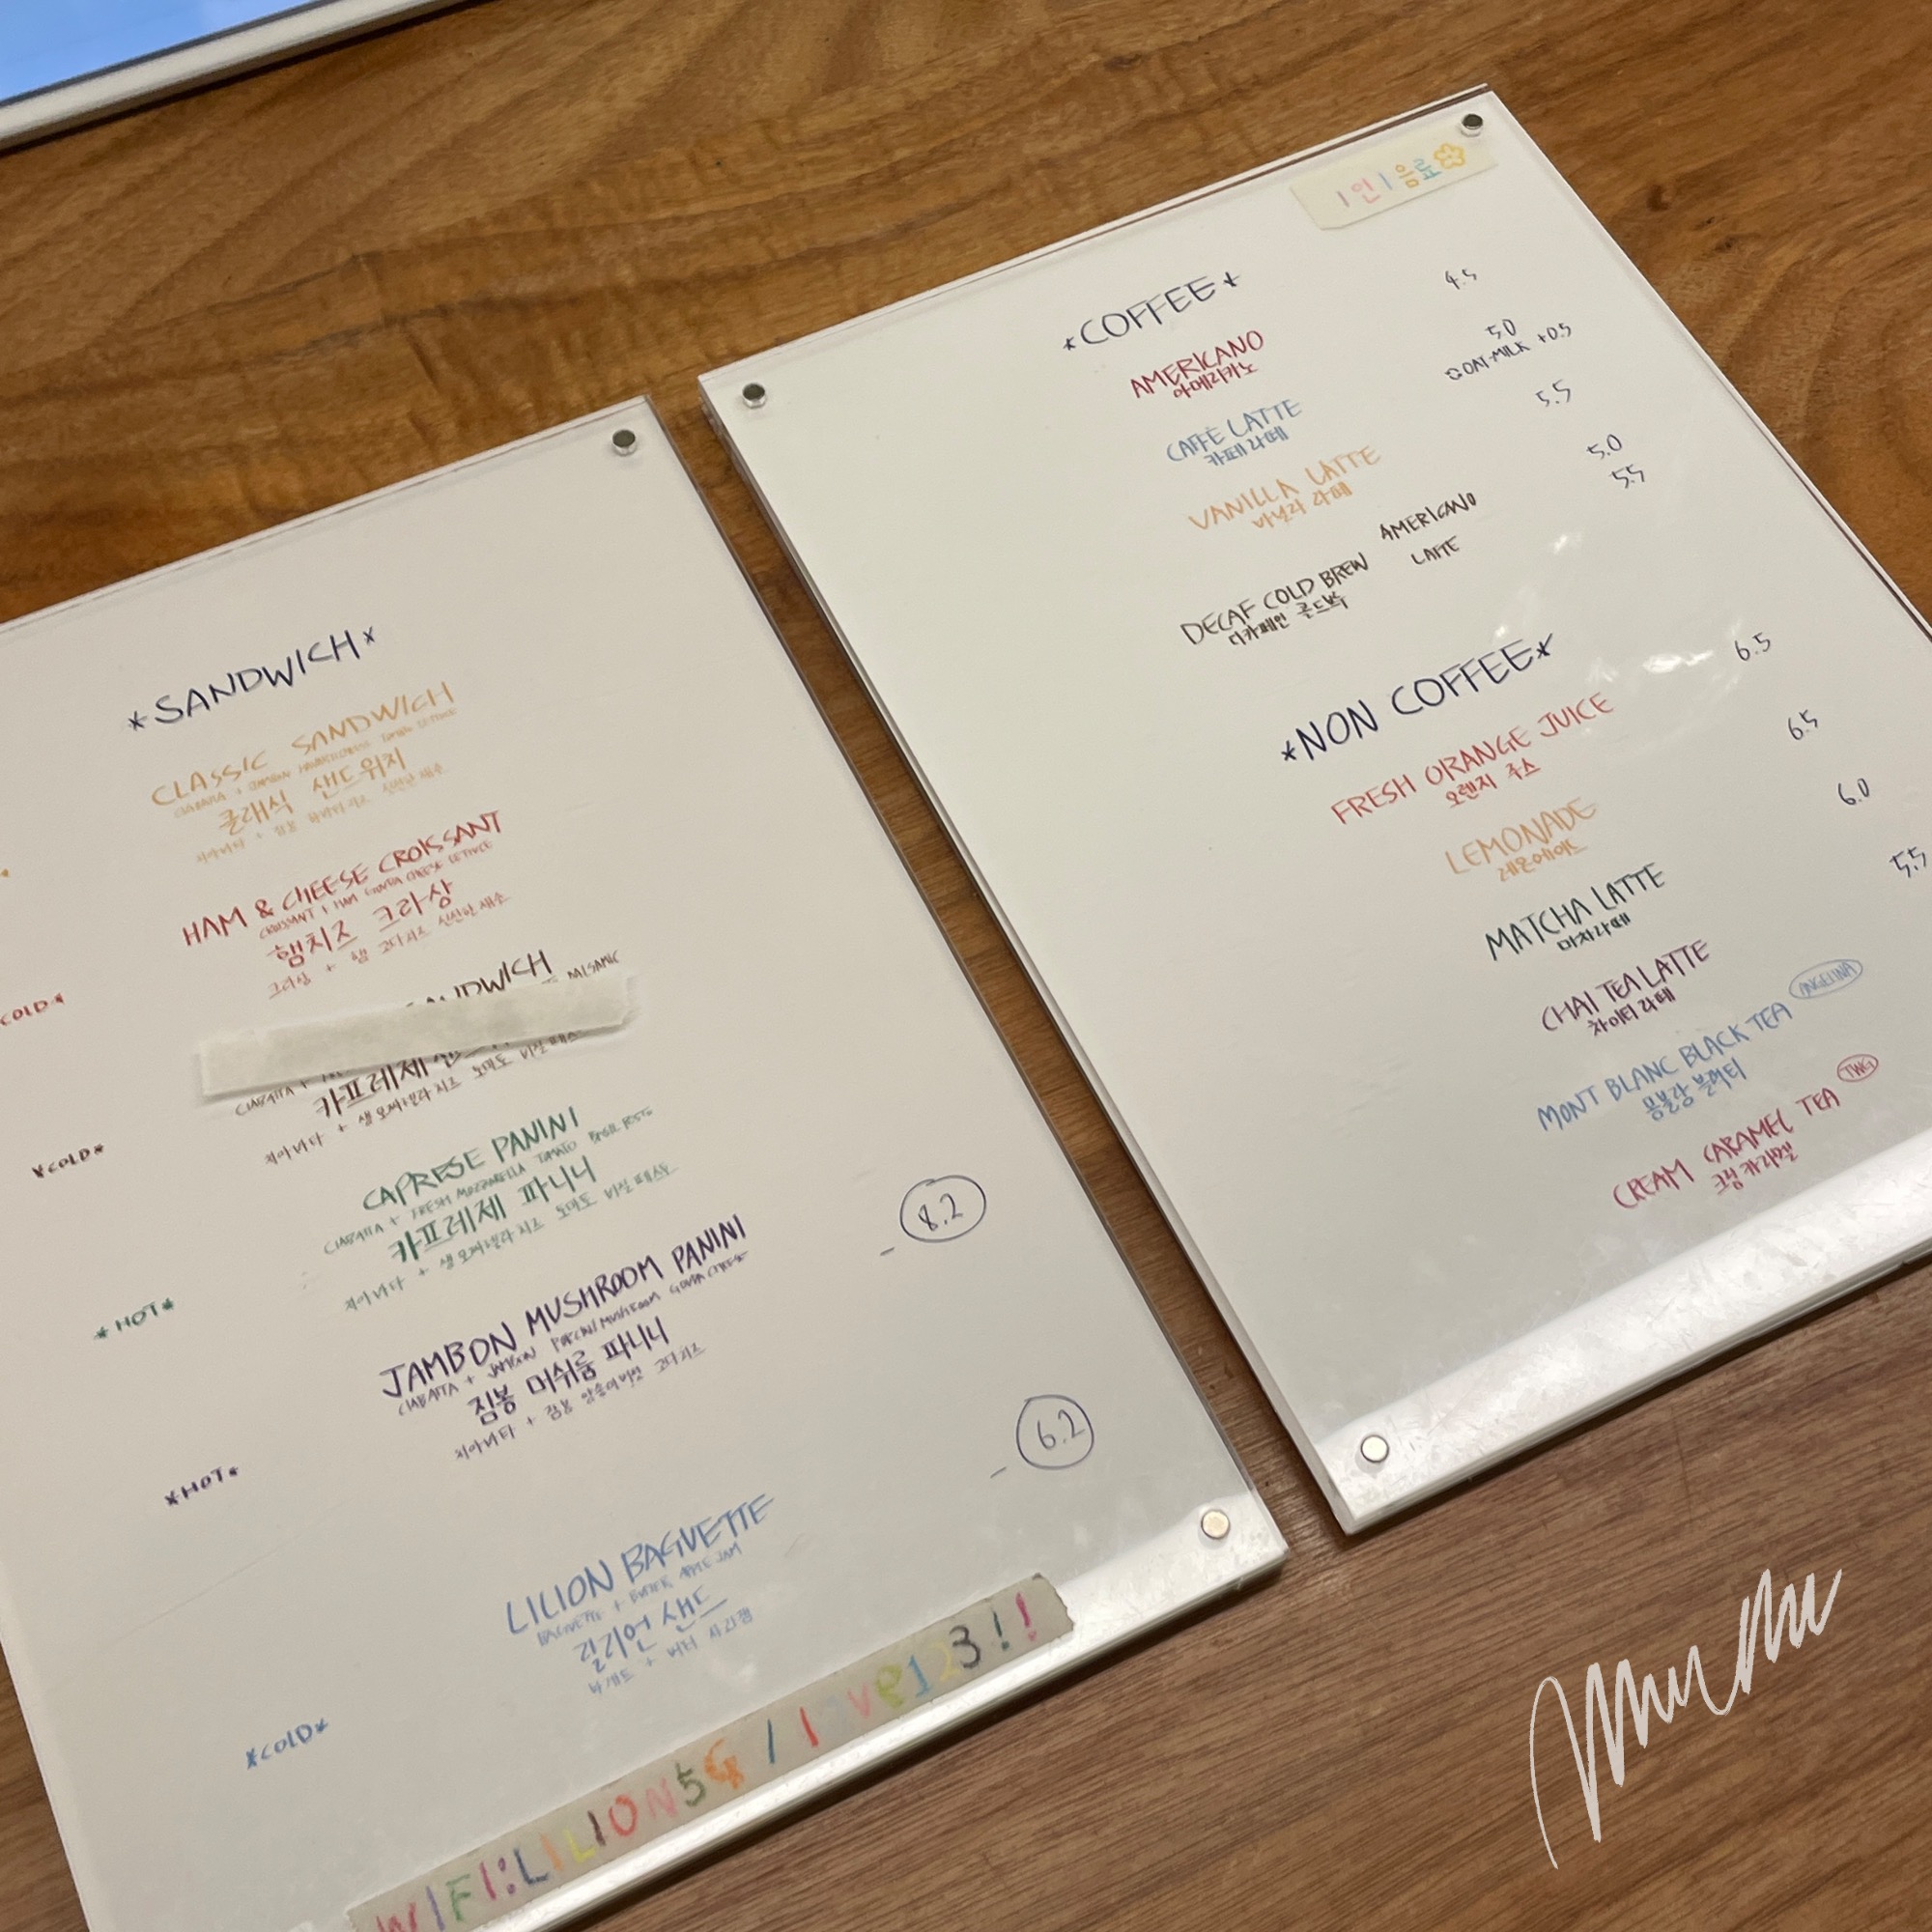 *SANDWICH*
CLASSIC SANDWICH
클래식 샌드위치
치아바타 + 잠봉 하바티치즈 신선한 채소
HAM & CHEESE CROISSANT
CROISSANT + HAM GOUDA CHEESE LETTUCE
햄치즈 크라상
크라상 + 햄 고다치즈 신선한 채소
COLD*
SANDWICH
BALSAMIC
CIABATTA +
카프레제
치아바타 + 생모짜렐라치즈 토마토 바질페스토
*COLD*
CAPRESE PANINI
CIABATTA + FRESH MOZZARELLA TOMATO BASIL PESTO
카프레제 파니니
치아바타 + 생모짜렐라치즈 토마토 바질페스토
*HOT*
JAMBON MUSHROOM PANINI
CIABATTA + JAMBON PORCINI MUSHROOM GOUDA CHEESE
잠봉 머쉬룸 파니니
치아바타 + 잠봉 양송이버섯 고다치즈
- 8.2
*HOT*
LILION BAGUETTE
BAGUETTE + BUTTER APPLE JAM
릴리언 샌드
바게트 + 버터 사과잼
- 6.2
*COLD*
WIFI:LILION5G / love123!!
1인 1음료
*COFFEE*
AMERICANO 4.5
아메리카노
CAFFÈ LATTE 5.0
카페라떼 OAT-MILK +0.5
VANILLA LATTE 5.5
바닐라 라떼
DECAF COLD BREW AMERICANO 5.0
디카페인 콜드브루 LATTE 5.5
*NON COFFEE*
FRESH ORANGE JUICE 6.5
오렌지 주스
LEMONADE 6.5
레몬에이드
MATCHA LATTE 6.0
마차라떼
CHAI TEA LATTE 5.5
차이티라떼
MONT BLANC BLACK TEA ANGELINA
몽블랑 블랙티
CREAM CARAMEL TEA TWG
크림 카라멜